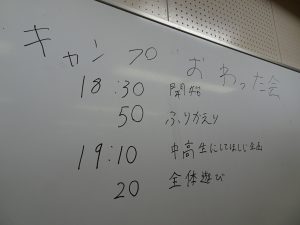 キャンプ おわった会
18:30 開始
50 ふりかえり
19:10 中高生にしてほしい企画
20 全体遊び